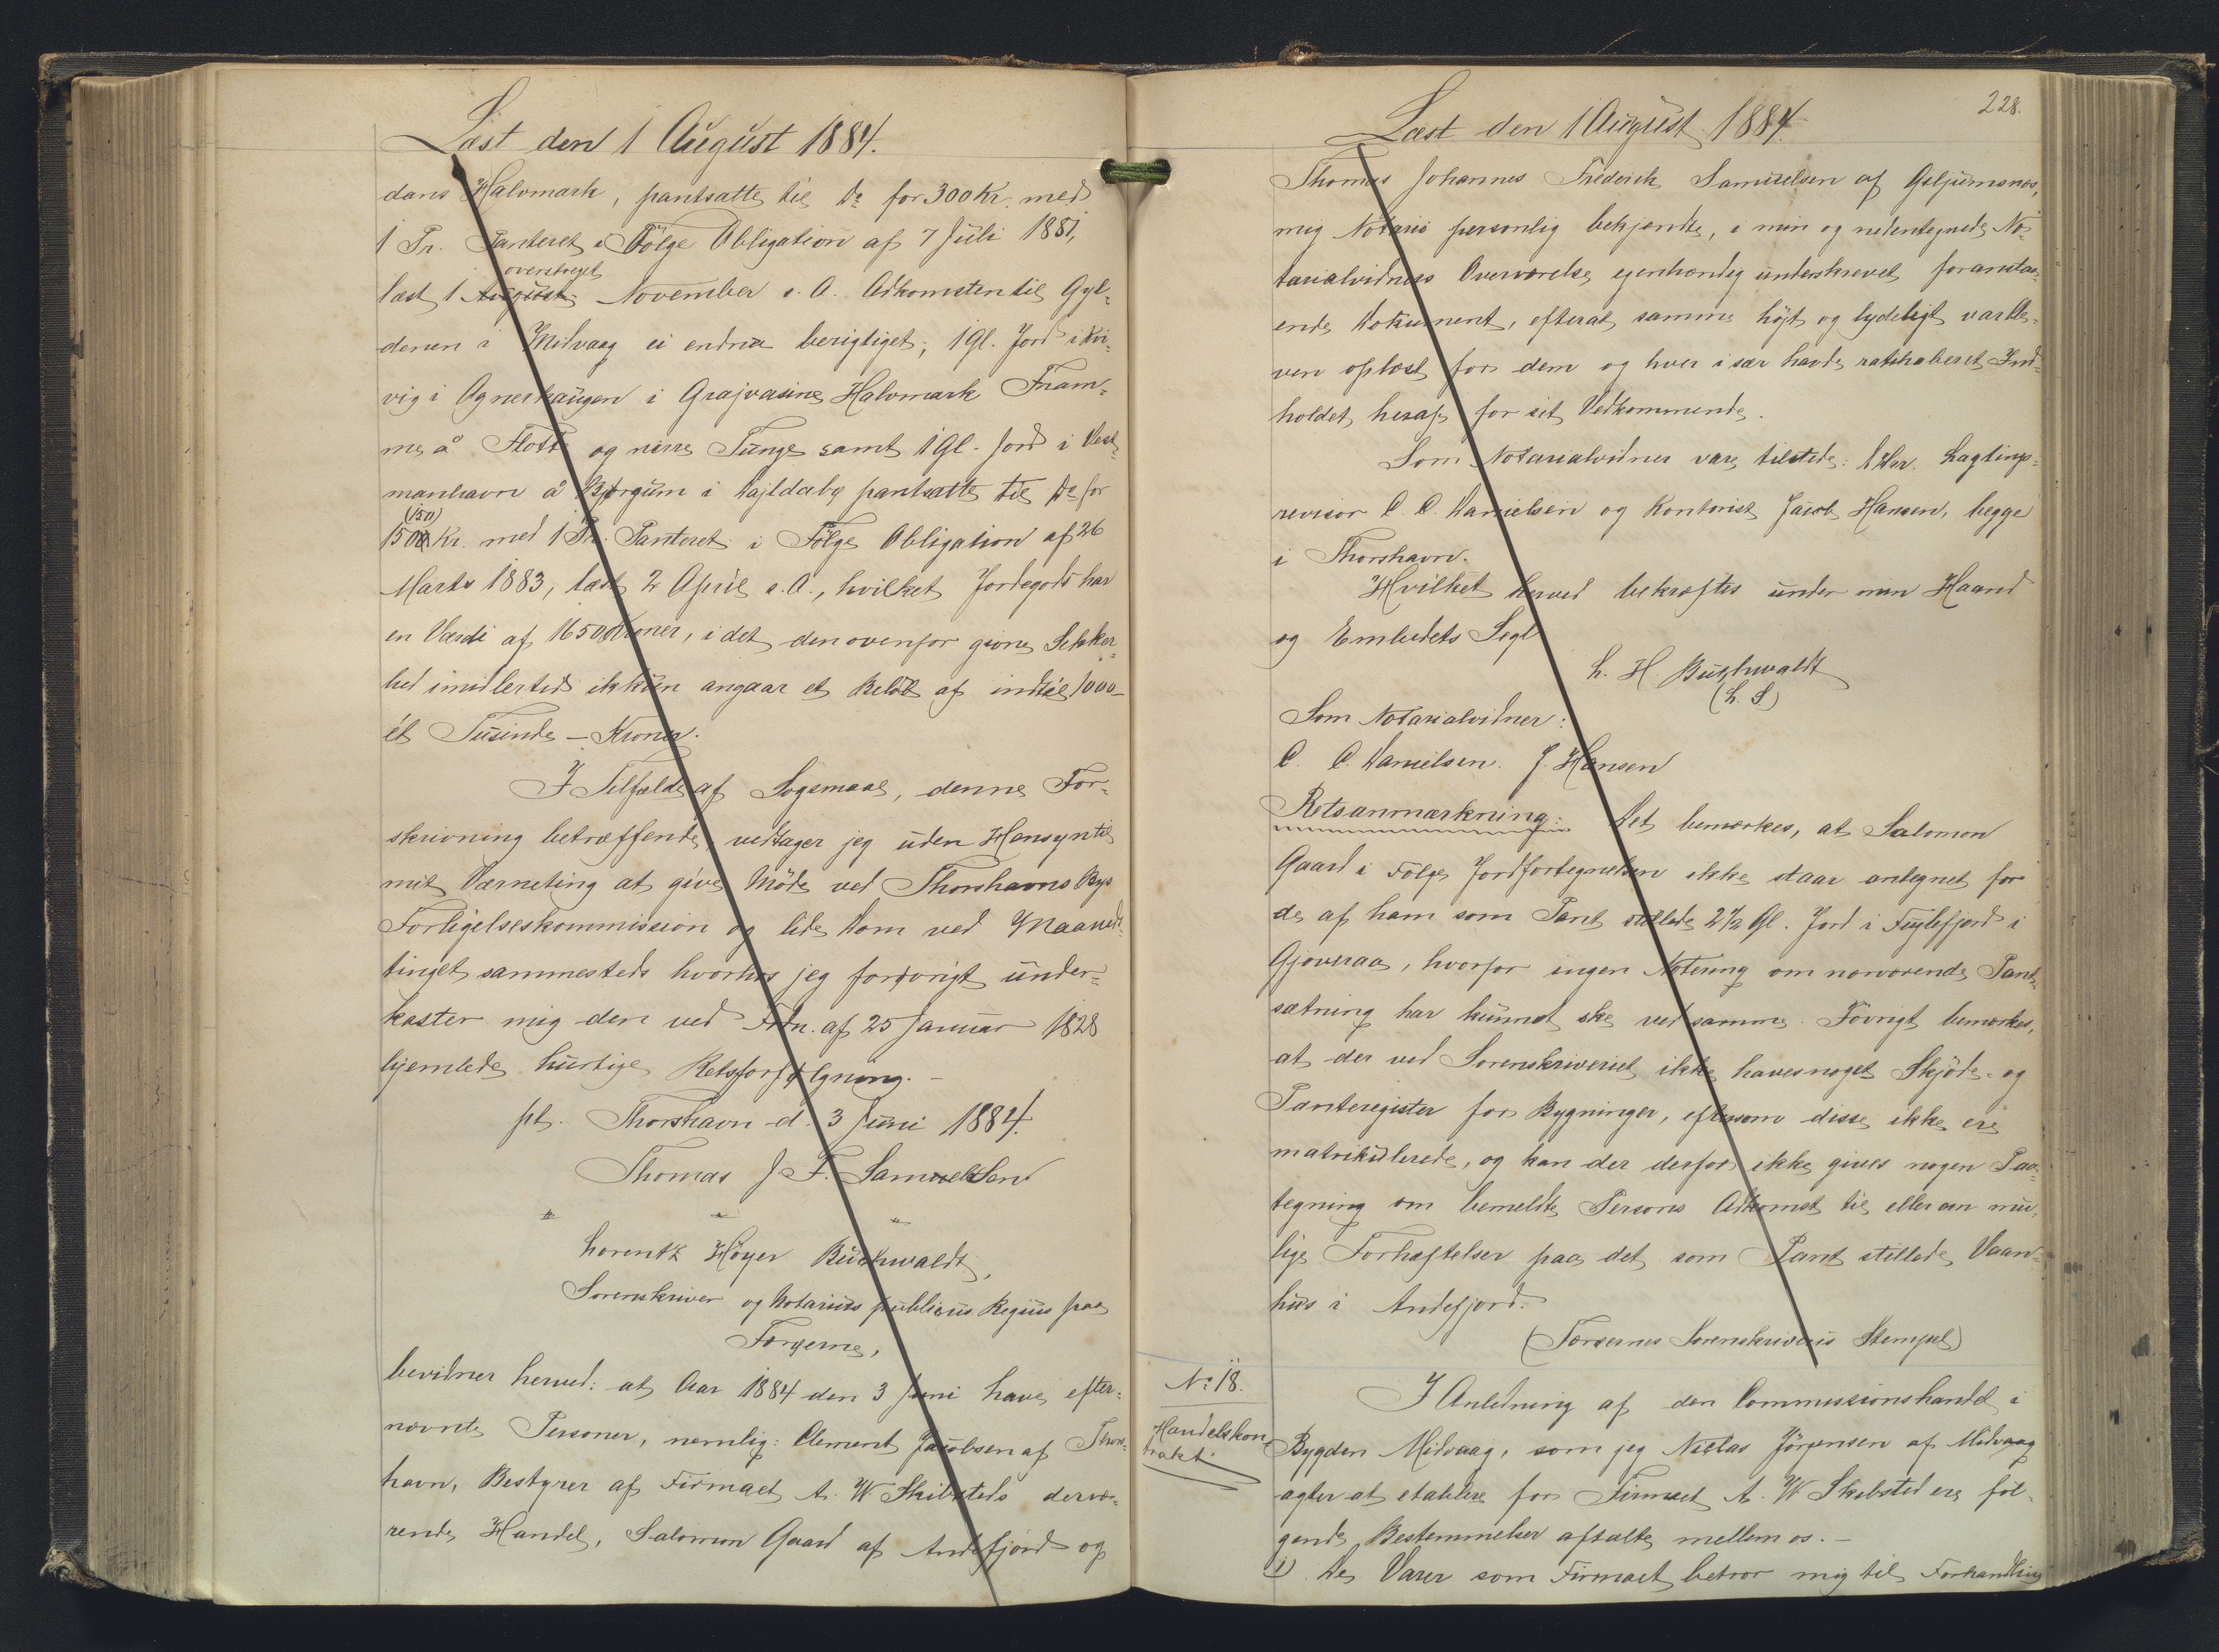 Læst den 1 August 1884.
dans Halvmark, pantsatte til Do for 300 Kr. med
1 Pr. Panteret i Følge Obligation af 7 Juli 1881,
overstreget
læst 1 August November s. A. Adkomsten til Gyl-
denen i Midvaag ei endnu berigtiget; 1 Gl. Jord i Kvi-
vig i Agnerhaugen i Grajvasins Halvmark Fram-
me å Flott og nirre Tunge samt 1 Gl. Jord i Vest-
manhavn å Bjørgum i Hajldabø pantsatte til Do for
(150)
1500 Kr. med 1 Pr. Panteret i Følge Obligation af 26
Marts 1883, læst 2 April s. A., hvilket Jordegods har
en Værdi af 1650 Kroner, i det den ovenfor givne Sikker-
hed imidlertid ikkun angaar et Beløb af indtil 1000 –
ét Tusinde – Kroner.
I Tilfælde af Søgsmaal, denne For-
skrivning betræffende, vedtager jeg uden Hensyn til
mit Værneting at give Møde ved Thorshavns Bys
Forligelseskommission og lide Dom ved Maaneds-
tinget sammesteds hvorhos jeg forøvrigt under-
kaster mig den ved Frdn. af 25 Januar 1828
hjemlede hurtige Retsforfølgning. –
pt. Thorshavn d. 3 Juni 1884.
Thomas J. F. Samuelsen
Lorentz Høyer Buchwaldt,
Sorenskriver og Notarius publicus Regius paa
Færøerne,
bevidner herved: at Aar 1884 den 3 Juni have efter-
nævnte Personer, nemlig: Clement Jacobsen af Thors-
havn, Bestyrer af Firmaet A. W. Skibsteds dervæ-
rende Handel, Salomon Gaard af Andefjord og
228.
Læst den 1 August 1884.
Thomas Johannes Frederik Samuelsen af Giljumsnæs,
mig Notario personlig bekjendte, i min og nedentegnede No-
tarialvidners Overværelse egenhændig underskrevet foranstaa-
ende Dokument, efterat samme højt og tydeligt var ble-
ven oplæst for dem og hver især havde ratihaberet Ind-
holdet heraf for sit Vedkommende.
Som Notarialvidner vare tilstede: DHrr. Lagtings-
revisor C. C. Danielsen og Kontorist Jacob Hansen, begge
i Thorshavn.
Hvilket herved bekræftes under min Haand
og Embedets Segl
L. H. Buchwaldt
(L. S)
Som Notarialvidner:
C. C. Danielsen. J. Hansen
Retsanmærkning: Det bemærkes, at Salomon
Gaard i Følge Jordfortegnelsen ikke staar antegnet for
de af ham som Pant stillede 2½ Gl. Jord i Fuglefjord i
Gjoveraa, hvorfor ingen Notering om nærværende Pant-
sætning har kunnet ske ved samme. Føvrigt bemærkes,
at der ved Sorenskriveriet ikke haves noget Skjøde- og
Panteregister for Bygninger, eftersom disse ikke ere
matrikulerede, og kan der derfor ikke gives nogen Paa-
tegning om bemeldte Persons Adkomst til eller om mu-
lige Forhæftelser paa det som Pant stillede Vaan-
hus i Andefjord.
(Færøernes Sorenskriveris Stempel)
No 18.
Handelskon-
trakt.
I Anledning af den Commissionshandel i
Bygden Midvaag, som jeg Niclas Jørgensen af Midvaag
agter at etablere for Firmaet A. W Skibsted ere føl-
gende Bestemmelser aftalte mellem os. –
1) De Varer som Firmaet betror mig til Forhandling